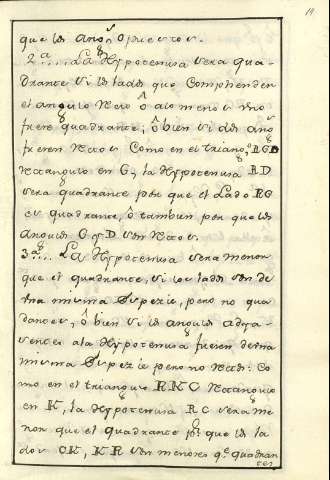 19
que los angs Opuestos.
2ª.... La Hypotenusa sera qua-
drante si los lados que Comprehenden
el angulo Recto ô alo menos uno
fuere quadrante; ô bien si dos angs
fueren Rectos Como en el triangº RGD
Rectangulo en G, la Hypotenusa RD
sera quadrante por que el Lado RG
es quadrante, ô tambien por que los
angulos G y D son Rectos.
3ª.... La Hypotenusa sera menor
que el quadrante, si los lados son de
una misma Especie, pero no qua-
drantes, ô bien si los angulos adya-
centes ala Hypotenusa fueren de una
misma Especie pero no Rectos: Co-
mo en el triangulo RKC Rectangulo
en K, la Hypotenusa RC sera me-
nor que el quadrante pr que los la-
dos CK, KR son menores qe quadran-
tes.